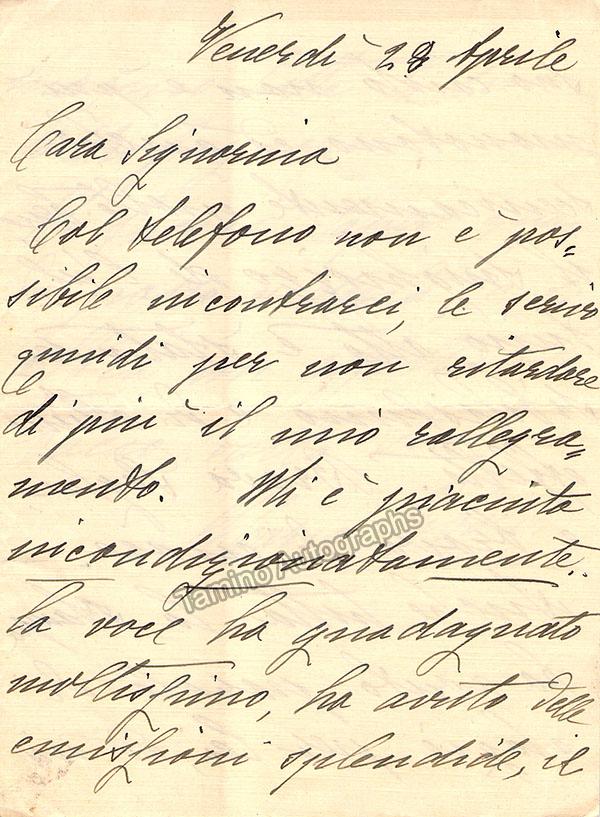 Venerdì 28 Aprile
Cara Signorina
Col telefono non è pos=
sibile incontrarci, le scrivo
quindi per non ritardare
di più il mio rallegra=
mento. Mi è piaciuta
incondizionatamente.
La voce ha guadagnato
moltissimo, ha avuto delle
emissioni splendide, il
Tamino Autographs